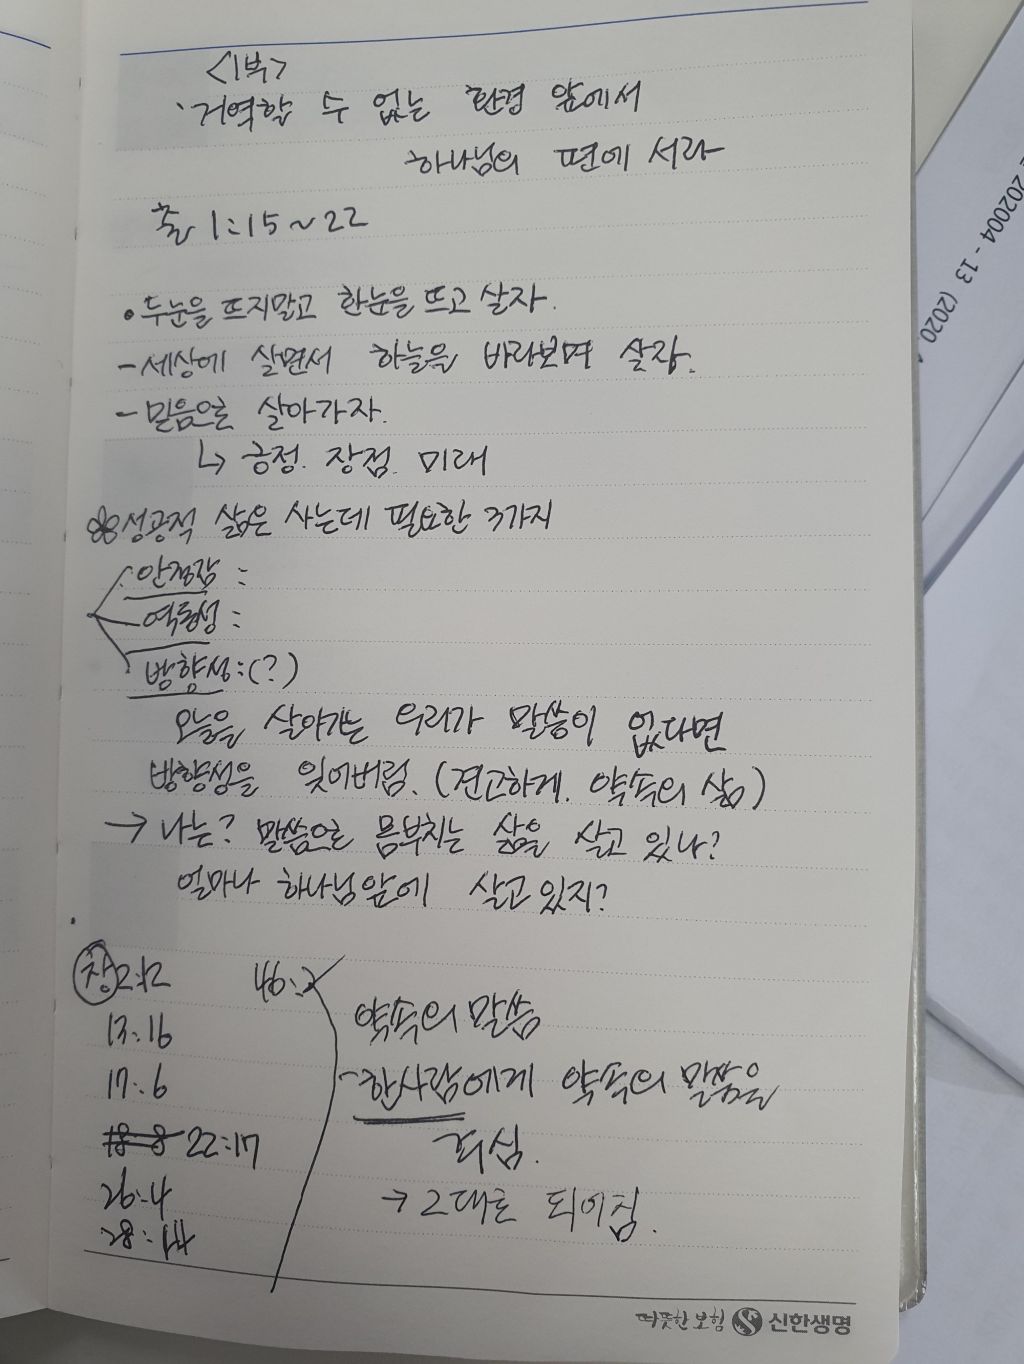 <1부>
거역할 수 없는 환경 앞에서
하나님의 편에 서라
출 1:15~22
• 두눈을 뜨지말고 한눈을 뜨고 살자.
- 세상에 살면서 하늘을 바라보며 살자.
- 믿음으로 살아가자.
↳ 긍정. 장점. 미래
성공적 삶은 사는데 필요한 3가지
안정감 :
역동성 :
방향성 : (?)
오늘을 살아가는 우리가 말씀이 없다면
방향성을 잊어버림. (견고하게. 약속의 삶)
→ 나는? 말씀으로 몸부치는 삶을 살고 있나?
얼마나 하나님앞에 살고 있지?
창 2:12 46:3
13:16
17:6
18-8 22:17
26:4
28:14
약속의 말씀
- 한사람에게 약속의 말씀을
주심.
→ 그대로 되어짐.
따뜻한 보험 신한생명
202004 - 13 (2020.